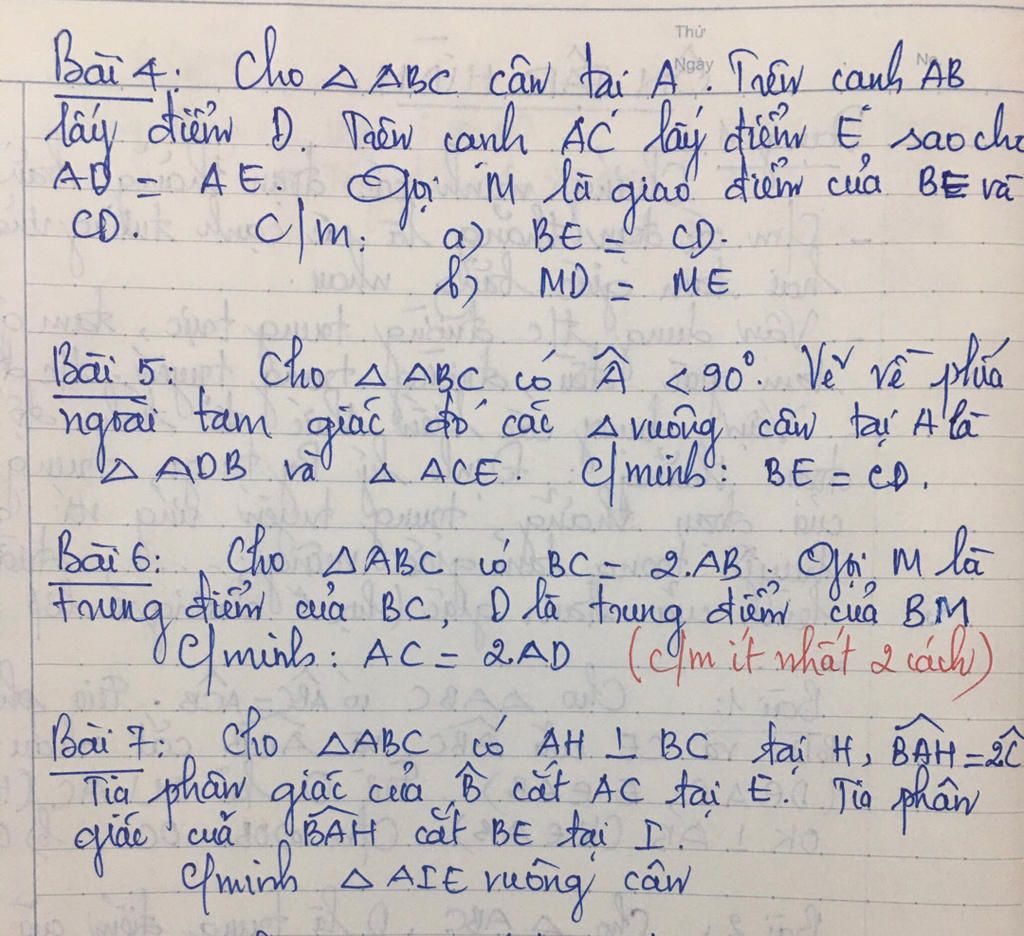 Thứ
Ngày
No
Bài 4: Cho △ABC cân tại A. Trên cạnh AB
lấy điểm D. Trên cạnh AC lấy điểm E sao cho
AD = AE. Gọi M là giao điểm của BE và
CD. C/m: a) BE = CD.
b) MD = ME
Bài 5: Cho △ABC có Â < 90°. Vẽ về phía
ngoài tam giác đó các △ vuông cân tại A là
△ ADB và △ ACE. C/minh: BE = CD.
Bài 6: Cho △ABC có BC = 2.AB Gọi M là
trung điểm của BC, D là trung điểm của BM
C/minh: AC = 2AD (c/m ít nhất 2 cách)
Bài 7: Cho △ABC có AH ⊥ BC tại H, B̂AH = 2Ĉ
Tia phân giác của B̂ cắt AC tại E. Tia phân
giác của B̂AH cắt BE tại I.
C/minh △ AIE vuông cân